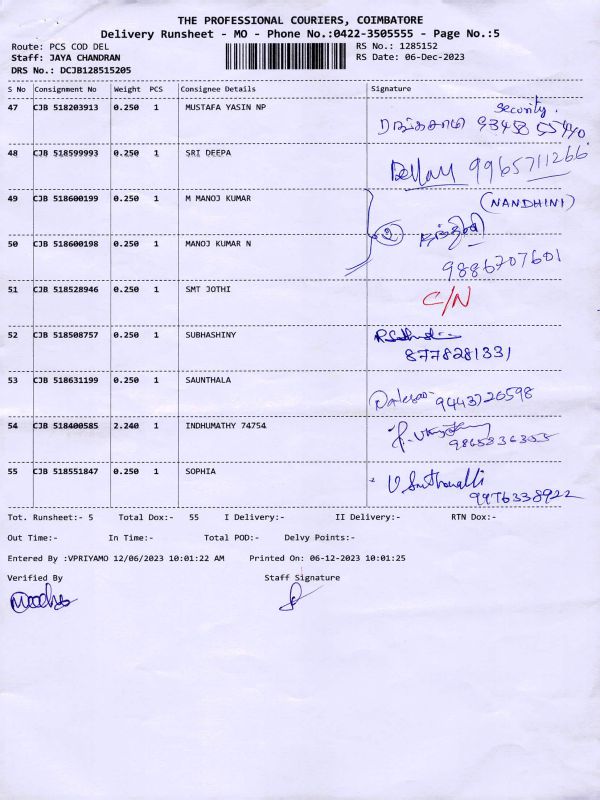 THE PROFESSIONAL COURIERS, COIMBATORE
Delivery Runsheet - MO - Phone No.:0422-3505555 - Page No.:5
Route: PCS COD DEL RS No.: 1285152
Staff: JAYA CHANDRAN RS Date: 06-Dec-2023
DRS No.: DCJB128515205
S No Consignment No Weight PCS Consignee Details Signature
47 CJB 518203913 0.250 1 MUSTAFA YASIN NP Security.
48 CJB 518599993 0.250 1 SRI DEEPA 9965711266
49 CJB 518600199 0.250 1 M MANOJ KUMAR (NANDHINI)
50 CJB 518600198 0.250 1 MANOJ KUMAR N 2
9886707601
51 CJB 518528946 0.250 1 SMT JOTHI C/N
52 CJB 518508757 0.250 1 SUBHASHINY
8778281331
53 CJB 518631199 0.250 1 SAUNTHALA 9443726598
54 CJB 518400585 2.240 1 INDHUMATHY 74754
55 CJB 518551847 0.250 1 SOPHIA
9976338922
Tot. Runsheet:- 5 Total Dox:- 55 I Delivery:- II Delivery:- RTN Dox:-
Out Time:- In Time:- Total POD:- Delvy Points:-
Entered By :VPRIYAMO 12/06/2023 10:01:22 AM Printed On: 06-12-2023 10:01:25
Verified By Staff Signature